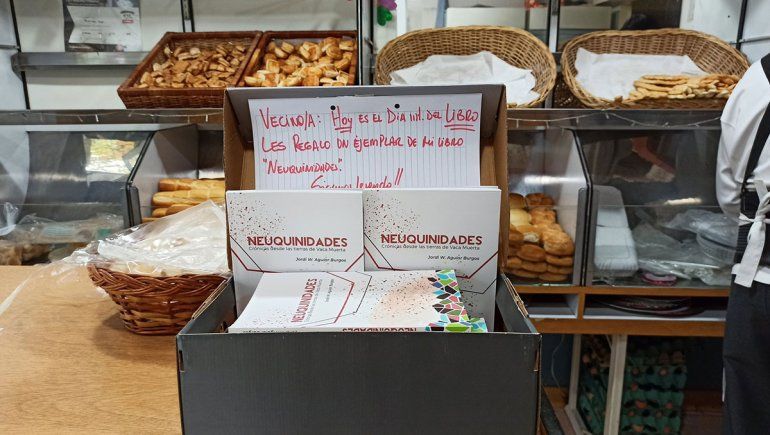 VECINO/A: HOY ES EL DIA INT. DEL LIBRO
LES REGALO UN EJEMPLAR DE MI LIBRO
"NEUQUINIDADES".
NEUQUINIDADES
Crónicas desde las tierras de Vaca Muerta
Jordi W. Aguiar Burgos
NEUQUINIDADES
Crónicas desde las tierras de Vaca Muerta
Jordi W. Aguiar Burgos
NEUQUINIDADES
NEUQUINIDADES